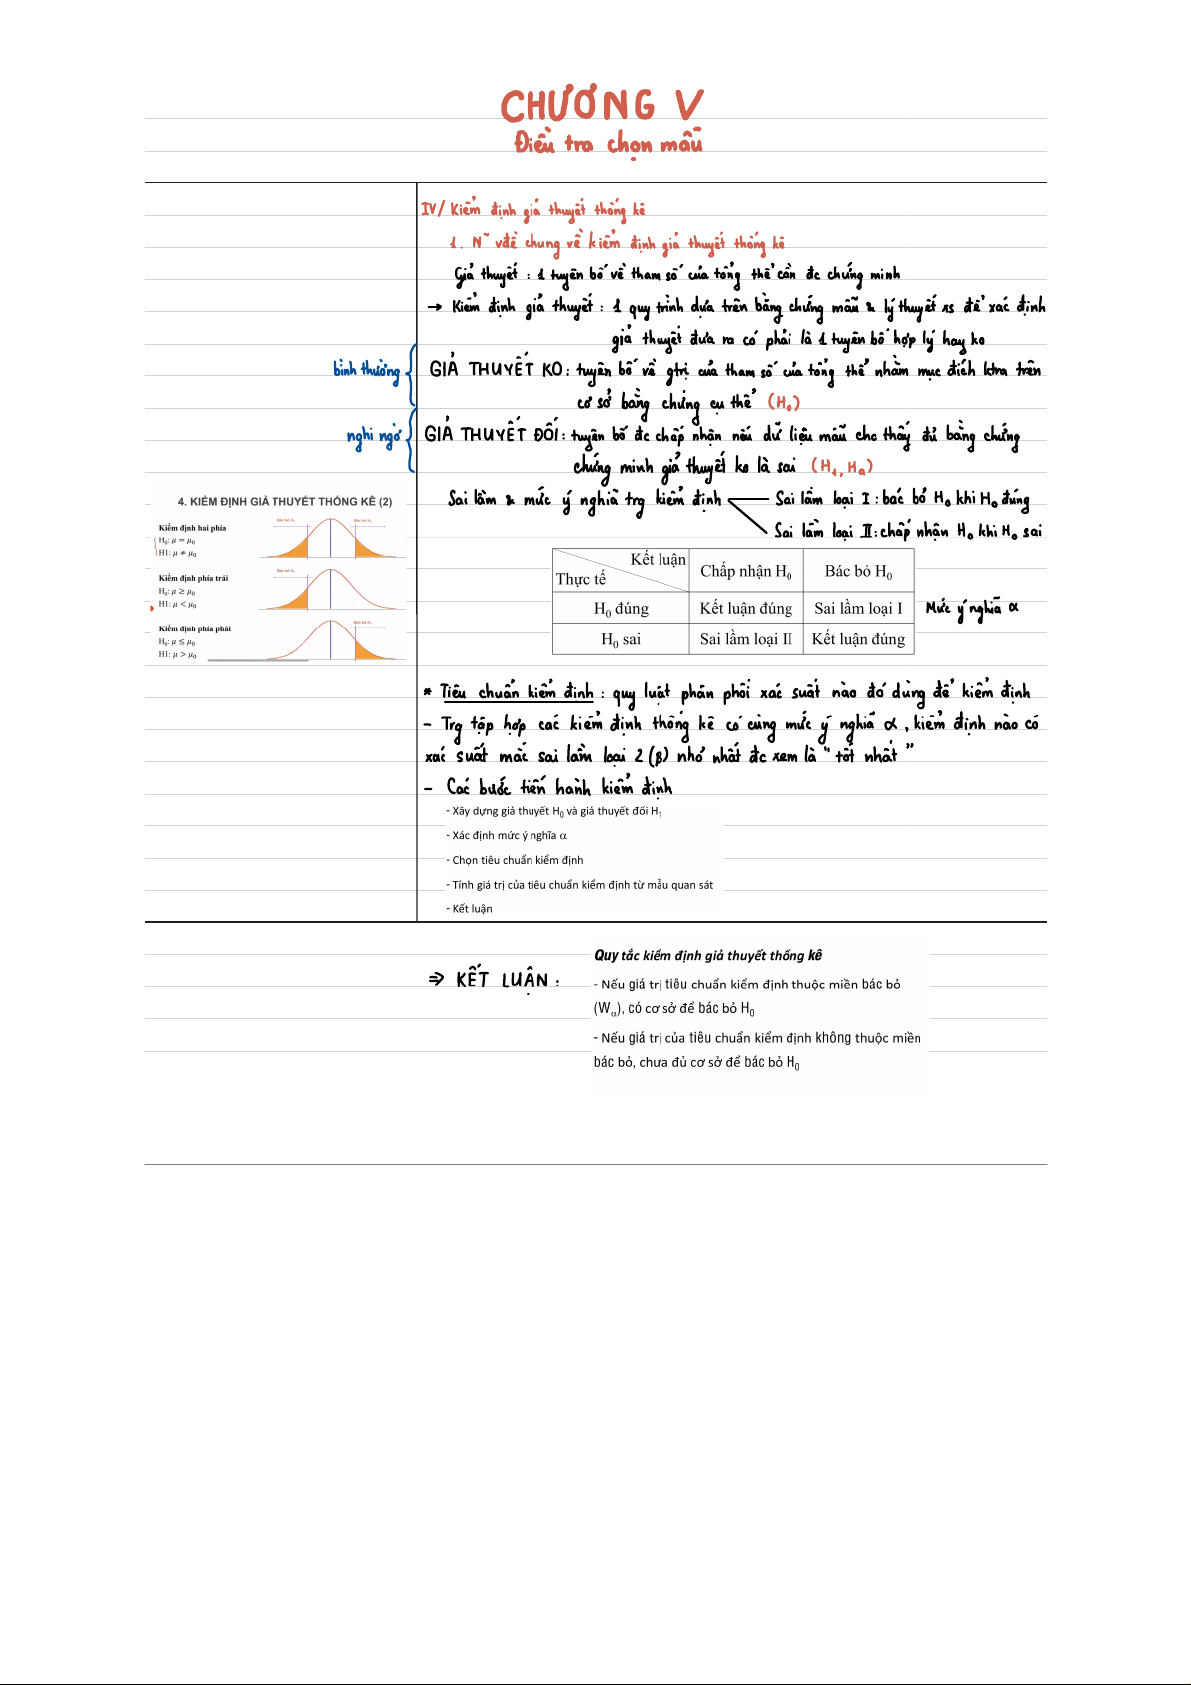 CHƯƠNG V
Điều tra chọn mẫu
IV/ Kiểm định giả thuyết thống kê
1. N~ vđề chung về kiểm định giả thuyết thống kê
Giả thuyết : 1 tuyên bố về tham số của tổng thể cần đc chứng minh
→ Kiểm định giả thuyết : 1 quy trình dựa trên bằng chứng mẫu & lý thuyết xs để xác định
giả thuyết đưa ra có phải là 1 tuyên bố hợp lý hay ko
bình thường
GIẢ THUYẾT KO : tuyên bố về gtrị của tham số của tổng thể nhằm mục đích ktra trên
cơ sở bằng chứng cụ thể (H₀)
nghi ngờ
GIẢ THUYẾT ĐỐI : tuyên bố đc chấp nhận nếu dữ liệu mẫu cho thấy đủ bằng chứng
chứng minh giả thuyết ko là sai (H₁, Hₐ)
Sai lầm & mức ý nghĩa trg kiểm định
Sai lầm loại I : bác bỏ H₀ khi H₀ đúng
Sai lầm loại II : chấp nhận H₀ khi H₀ sai
4. KIỂM ĐỊNH GIẢ THUYẾT THỐNG KÊ (2)
Kiểm định hai phía
H₀: μ = μ₀
H1: μ ≠ μ₀
Bác bỏ H₀ Bác bỏ H₀
Kiểm định phía trái
H₀: μ ≥ μ₀
H1: μ < μ₀
Bác bỏ H₀
Kiểm định phía phải
H₀: μ ≤ μ₀
H1: μ > μ₀
Bác bỏ H₀
Kết luận
Thực tế
Chấp nhận H₀ Bác bỏ H₀
H₀ đúng Kết luận đúng Sai lầm loại I Mức ý nghĩa α
H₀ sai Sai lầm loại II Kết luận đúng
* Tiêu chuẩn kiểm định : quy luật phân phối xác suất nào đó dùng để kiểm định
- Trg tập hợp các kiểm định thống kê có cùng mức ý nghĩa α , kiểm định nào có
xác suất mắc sai lầm loại 2 (β) nhỏ nhất đc xem là " tốt nhất "
- Các bước tiến hành kiểm định
- Xây dựng giả thuyết H₀ và giả thuyết đối H₁
- Xác định mức ý nghĩa α
- Chọn tiêu chuẩn kiểm định
- Tính giá trị của tiêu chuẩn kiểm định từ mẫu quan sát
- Kết luận
⇒ KẾT LUẬN :
Quy tắc kiểm định giả thuyết thống kê
- Nếu giá trị tiêu chuẩn kiểm định thuộc miền bác bỏ
(Wα), có cơ sở để bác bỏ H₀
- Nếu giá trị của tiêu chuẩn kiểm định không thuộc miền
bác bỏ, chưa đủ cơ sở để bác bỏ H₀